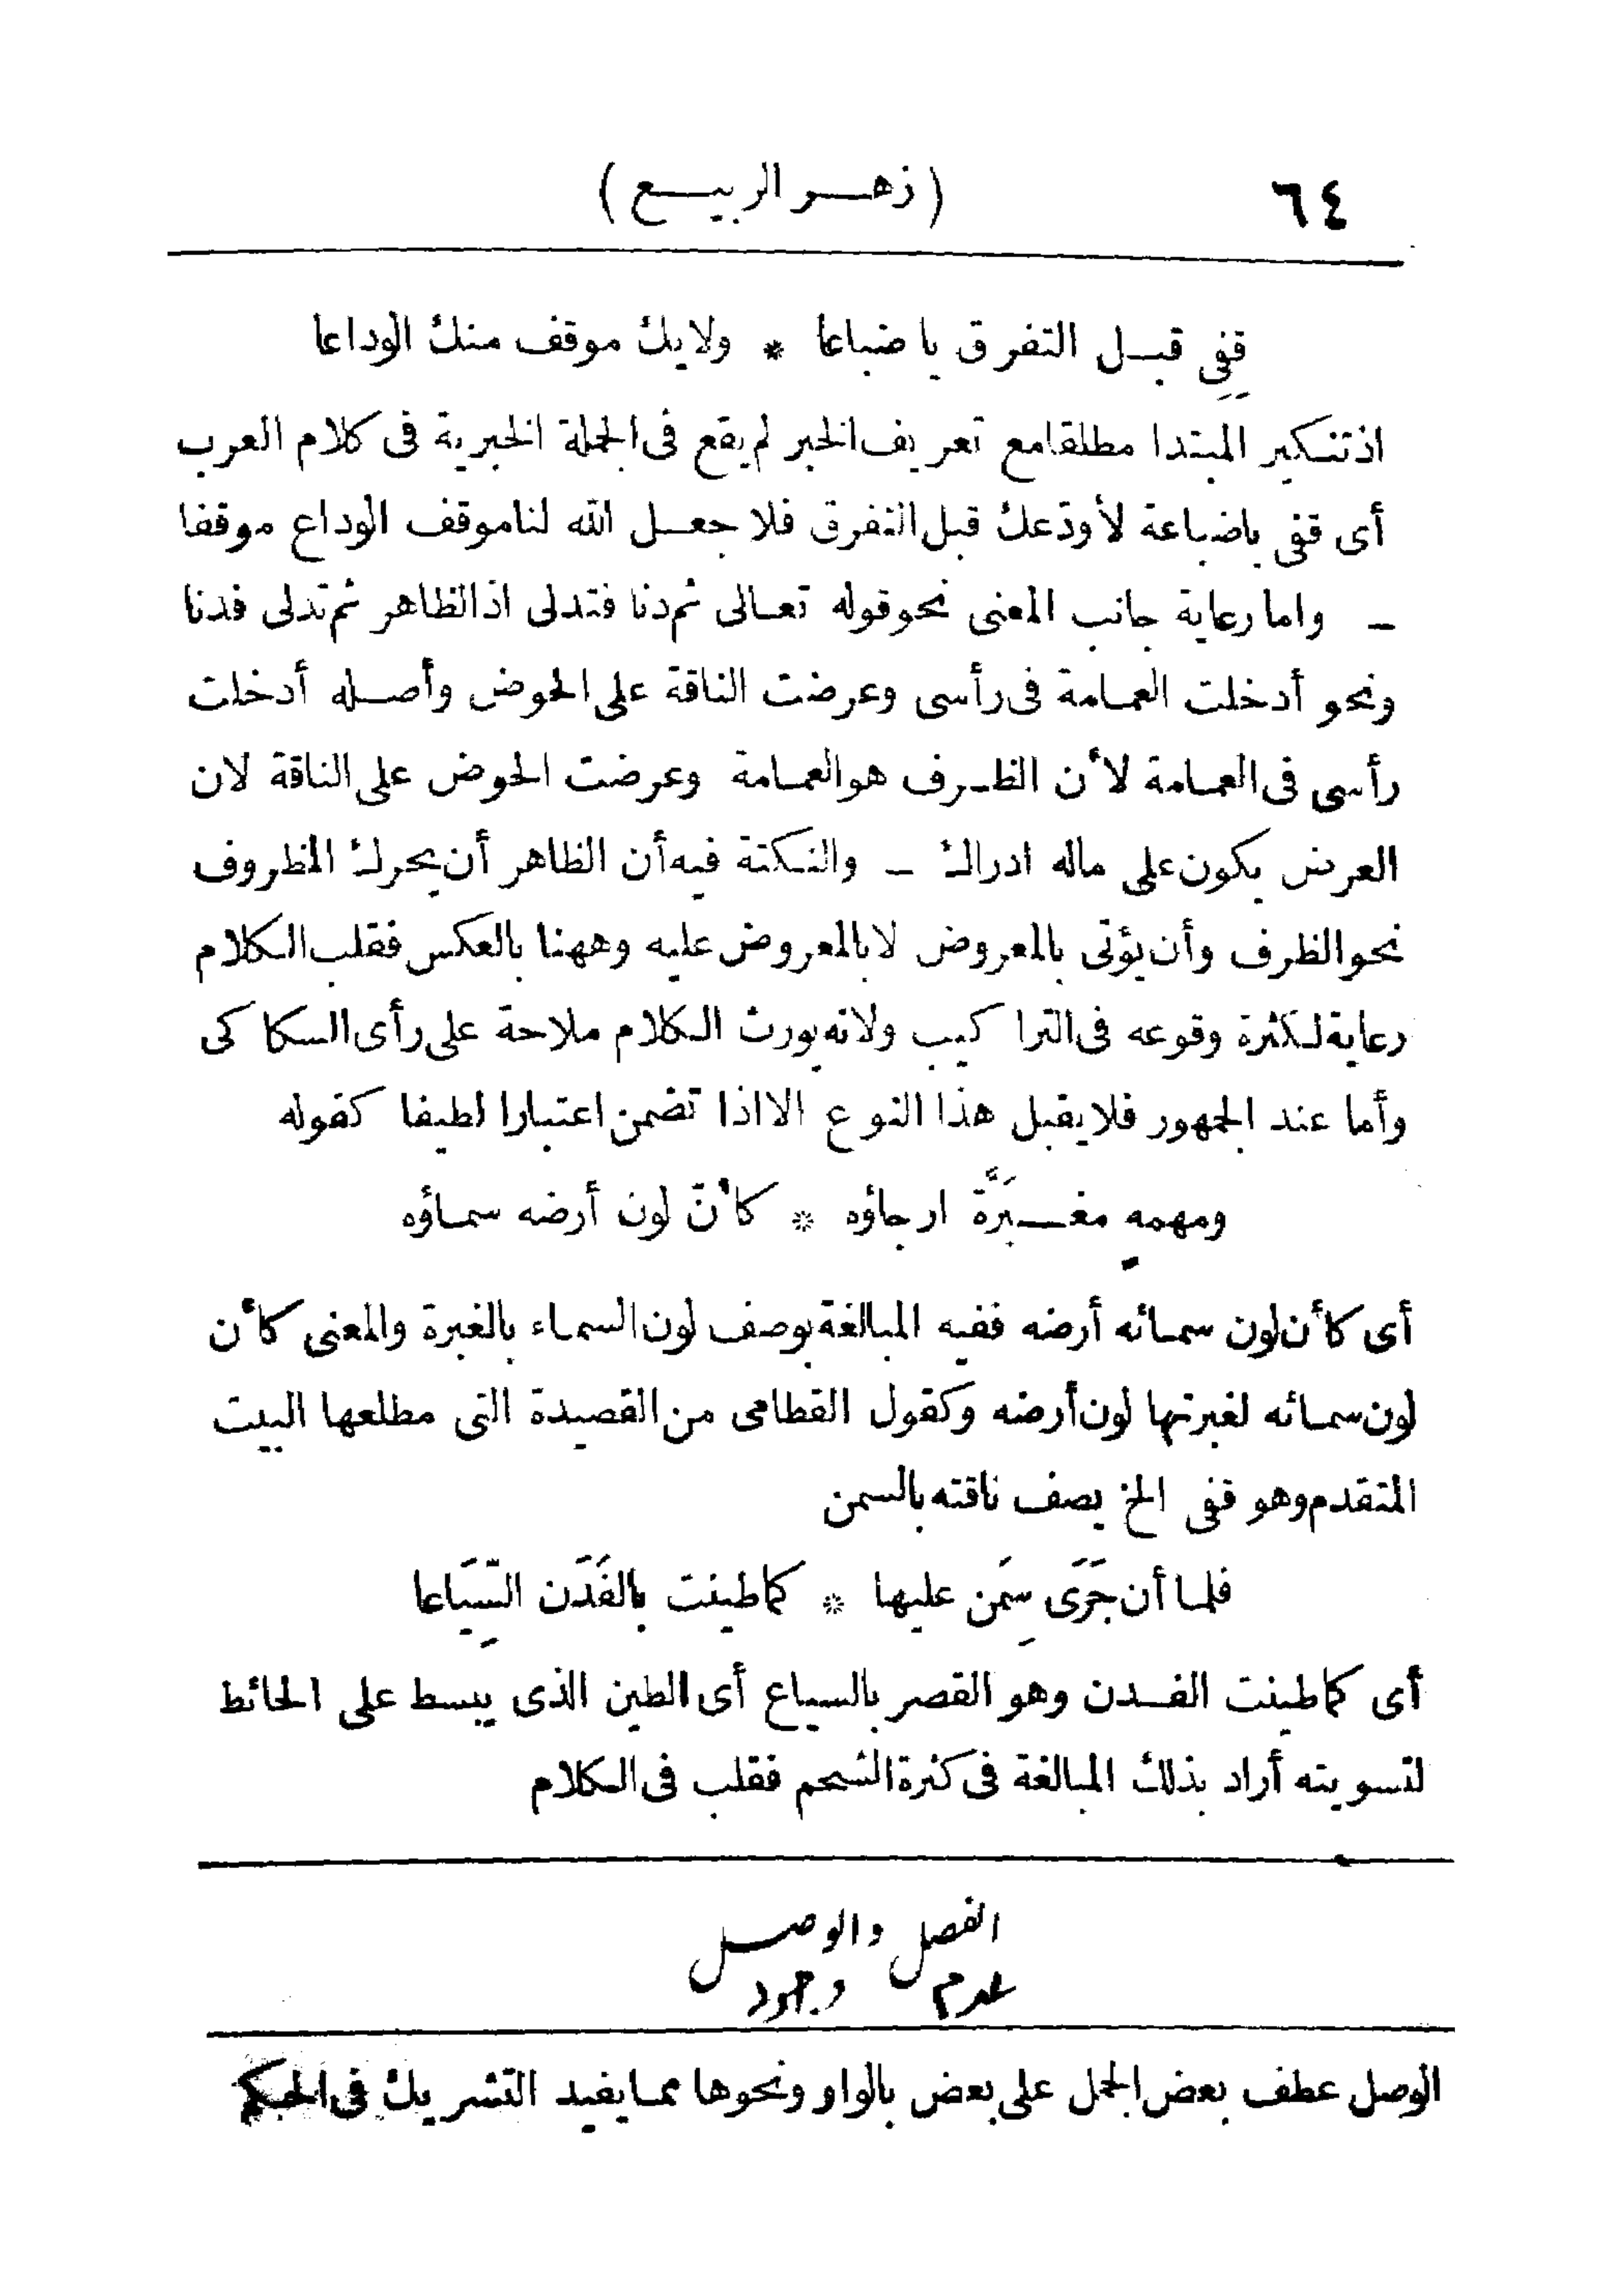 ٦٤ (زهر الربيع)
قِفِى قبل التفرق يا ضباعا * ولا يك موقف منك الوداعا
اذ تنكير المبتدا مطلقا مع تعريف الخبر لم يقع فى الجملة الخبرية فى كلام العرب
أى قفى ياضباعة لأودّعك قبل التفرق فلا جعل الله لنا موقف الوداع موقفا
ــ واما رعاية جانب المعنى نحو قوله تعالى ثم دنا فتدلى اذ الظاهر ثم تدلى فدنا
ونحو أدخلت العمامة فى رأسى وعرضت الناقة على الحوض وأصله أدخلت
رأسى فى العمامة لأن الظرف هو العمامة وعرضت الحوض على الناقة لان
العرض يكون على ماله ادراك ــ والنكتة فيه أن الظاهر أن يحرك المظروف
نحو الظرف وأن يؤتى بالمعروض لا بالمعروض عليه وههنا بالعكس فقلب الكلام
رعاية لكثرة وقوعه فى التراكيب ولانه يورث الكلام ملاحة على رأى السكاكى
وأما عند الجمهور فلا يقبل هذا النوع الا اذا تضمن اعتبارا لطيفا كقوله
ومهمهٍ مغبَرَّة ارجاؤه * كأنّ لون أرضه سماؤه
أى كأن لون سمائه أرضه ففيه المبالغة بوصف لون السماء بالغبرة والمعنى كأن
لون سمائه لغبرتها لون أرضه وكقول القطامى من القصيدة التى مطلعها البيت
المتقدم وهو قفى الخ يصف ناقته بالسمن
فلما أن جَرَى سِمَن عليها * كما طينت بالفَدَن السِّيَاعا
أى كما طينت الفدن وهو القصر بالسياع أى الطين الذى يبسط على الحائط
لتسويته أراد بذلك المبالغة فى كثرة الشحم فقلب فى الكلام
الفصل والوصل
عدم وجود
الوصل عطف بعض الجمل على بعض بالواو ونحوها مما يفيد التشريك فى الحكم